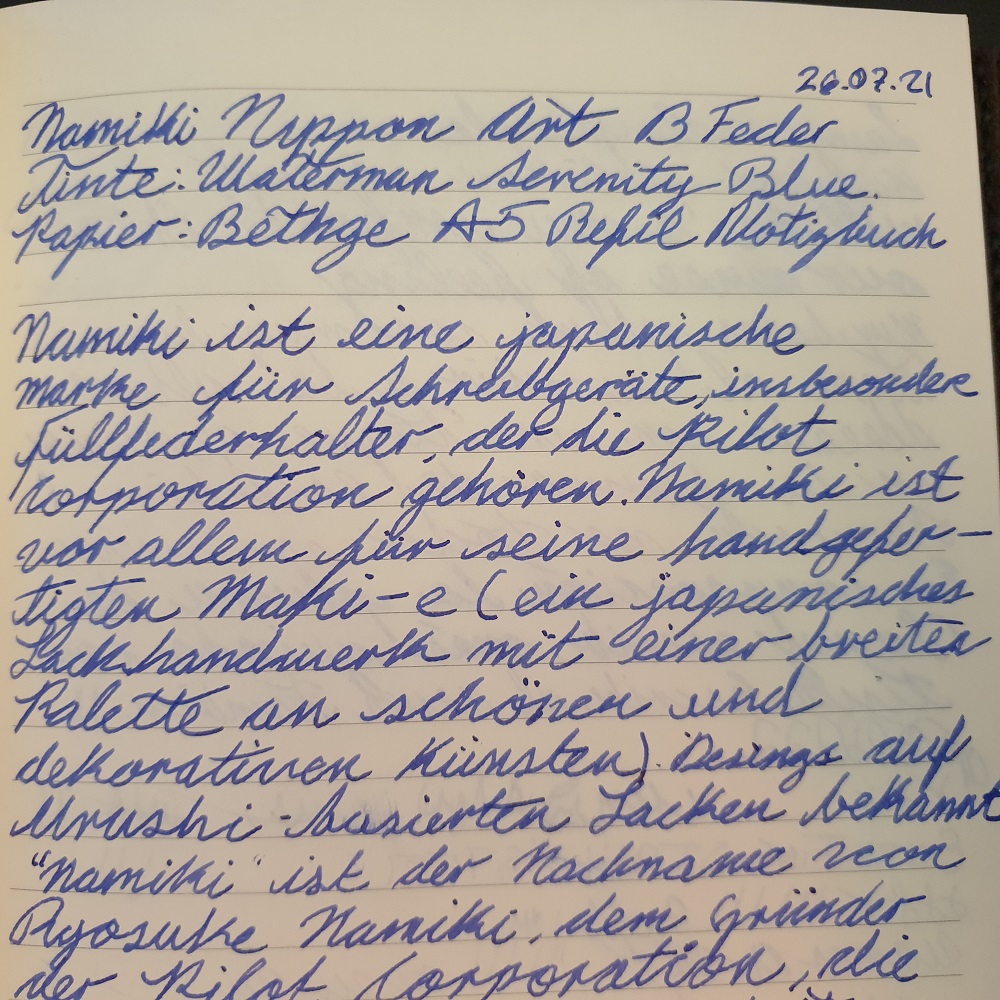 26.07.21
Namiki Nippon Art B Feder
Tinte: Waterman Serenity Blue.
Papier: Bethge A5 Refil Notizbuch
Namiki ist eine japanische
Marke für Schreibgeräte, insbesondere
Füllfederhalter, der die Pilot
Corporation gehören. Namiki ist
vor allem für seine handgefer-
tigten Maki-e (ein japanisches
Lackhandwerk mit einer breiten
Palette an schönen und
dekorativen Künsten). Desings auf
Urushi-basierten Lacken bekannt
"Namiki" ist der Nachname von
Ryosuke Namiki, dem Gründer
der Pilot Corporation, die